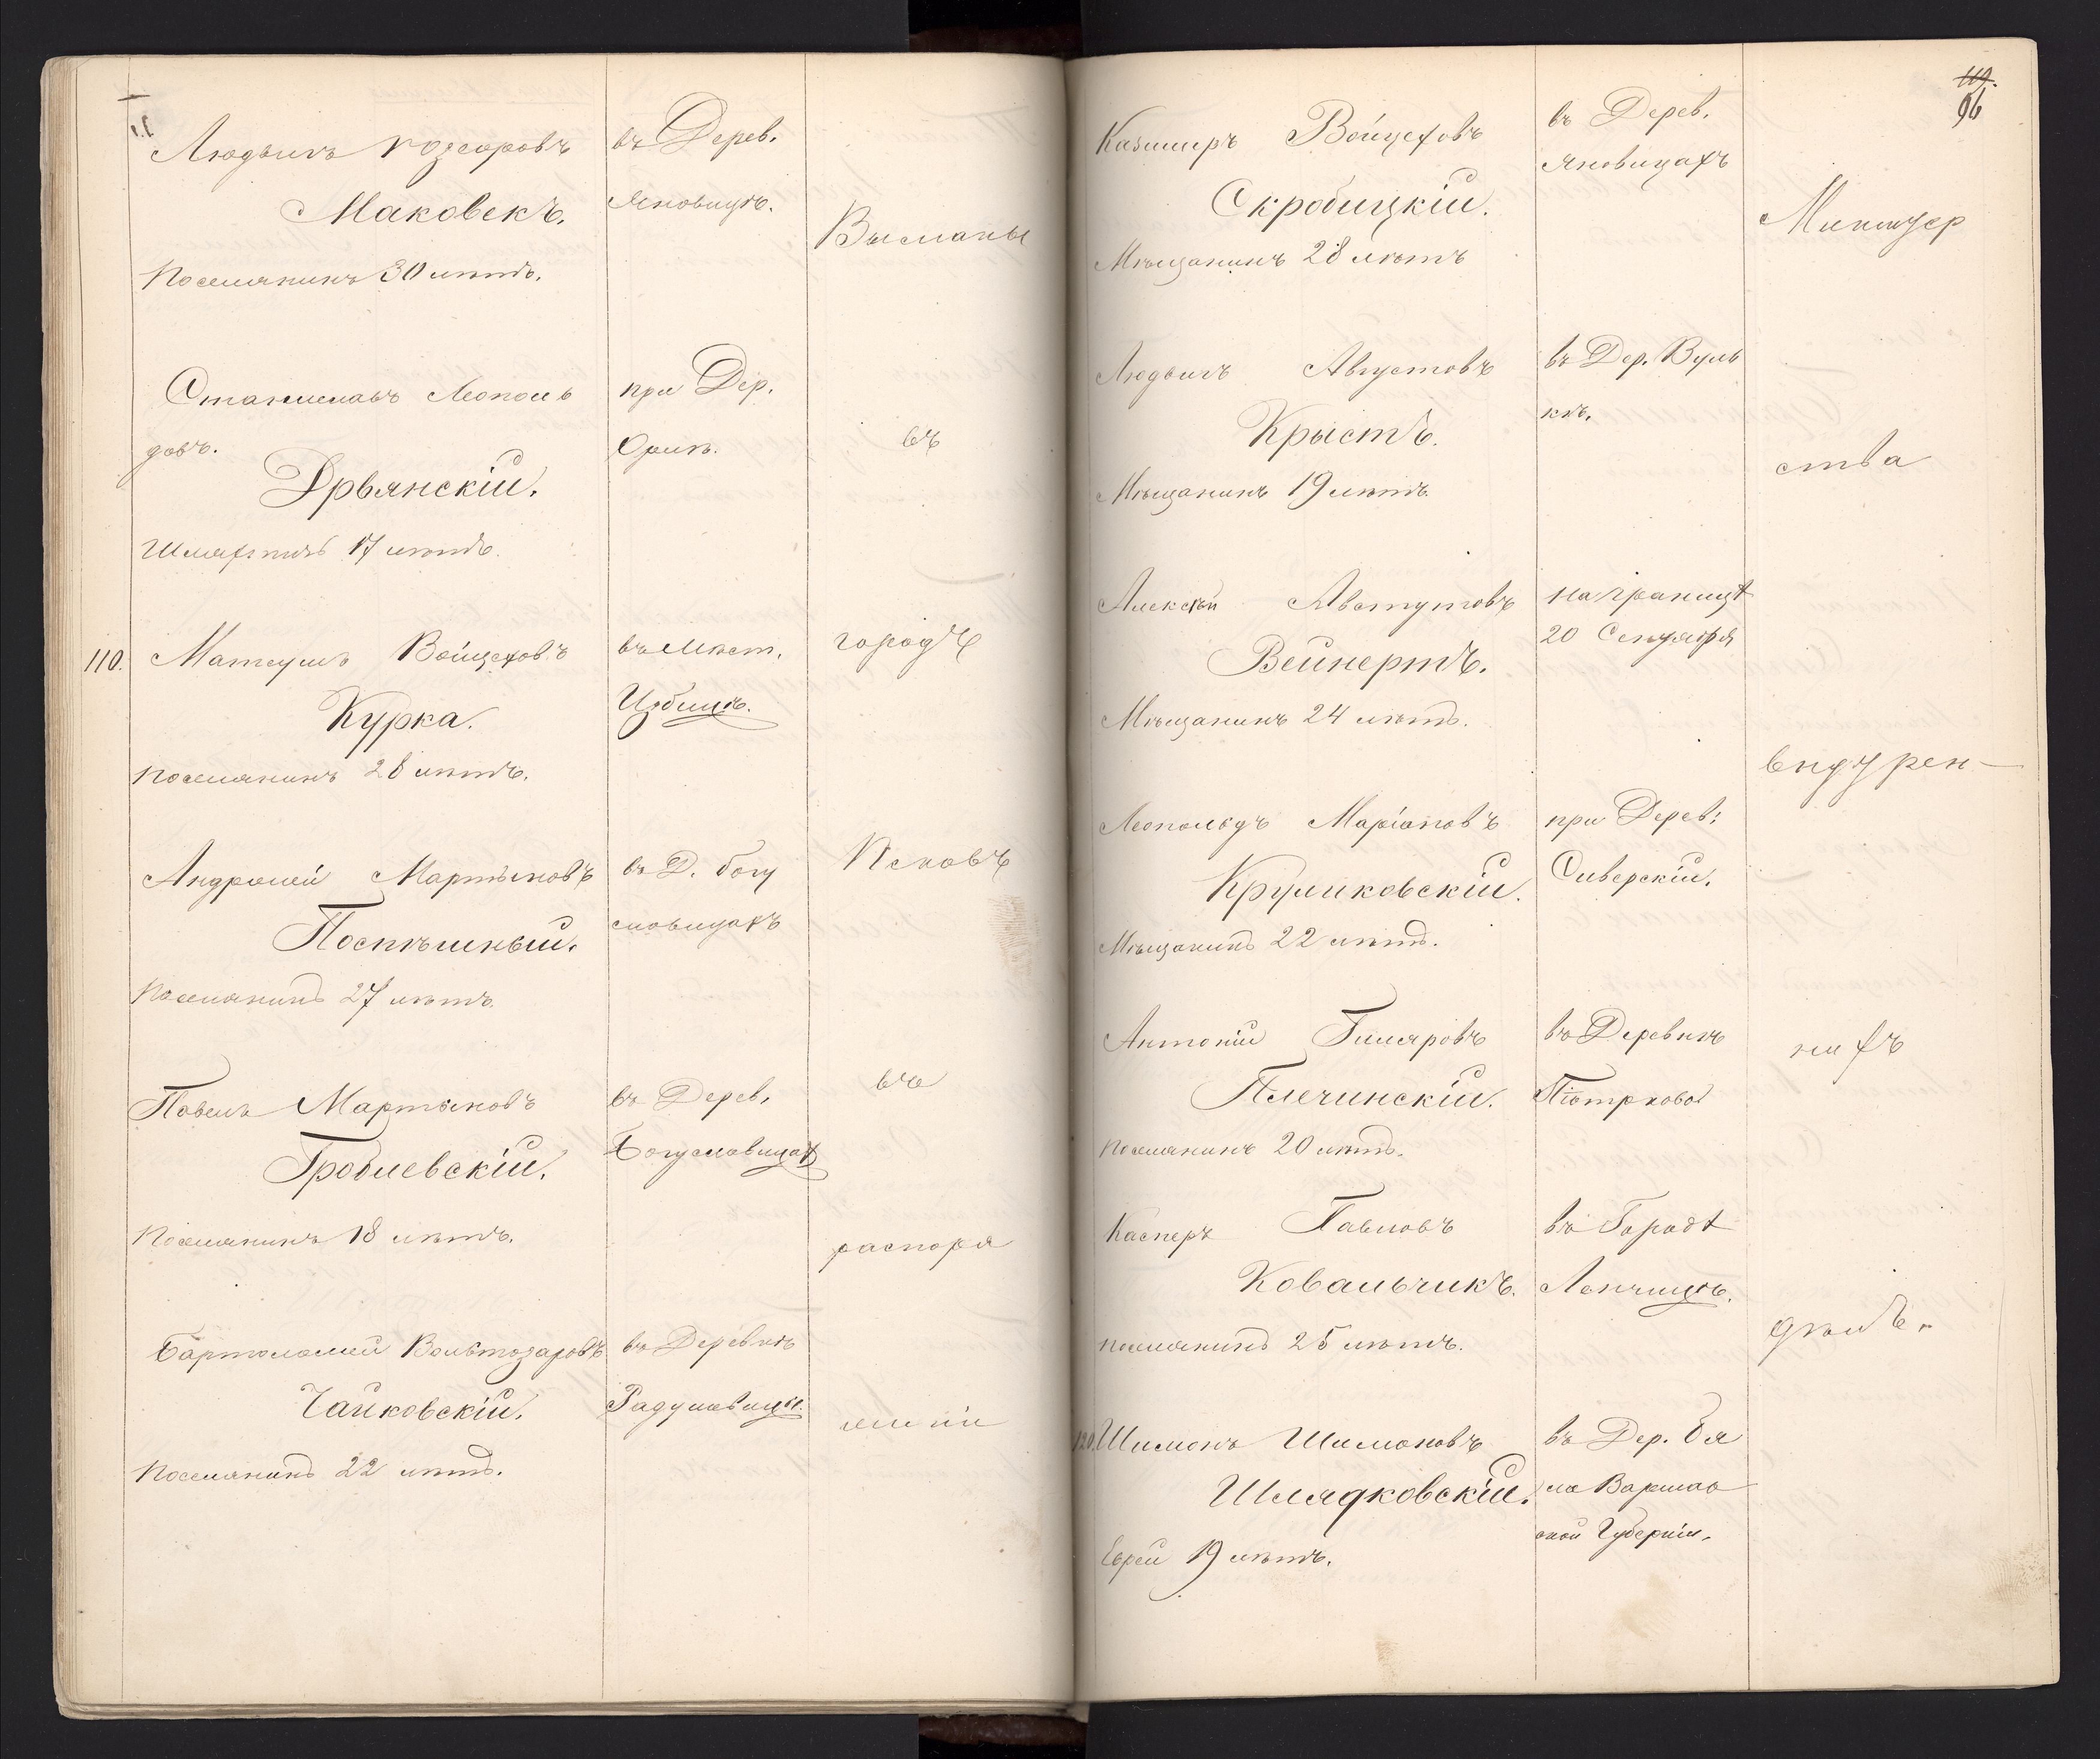 Людвигъ
въ Дерев.
Маковскъ.
Яновицъ.
Высланы
Поселянинъ 30 лѣтъ.
Станиславъ Леополь
при Дер.
довъ.
въ
Дрвянскій.
Шляхтичъ 17 лѣтъ.
110. Матеушъ Войцеховъ
въ Мѣст.
городъ
Курка.
Избицѣ.
Поселянинъ 28 лѣтъ.
Андрелей Мартыновъ
въ Д. Богу
Псковъ
Поспѣшный.
словицахъ
Поселянинъ 27 лѣтъ.
Павелъ Мартыновъ
въ Дерев.
въ
Гроблевскій.
Богуславицахъ
Поселянинъ 18 лѣтъ.
распоря
Бартоломей Вольтозаровъ
въ Деревнѣ
Чайковскій.
Радулавицы.
Поселянинъ 22 лѣтъ.
119.
96
Казимиръ Войцеховъ
въ Дерев.
Скробицкій.
Яновицахъ
Министер
Мѣщанинъ 28 лѣтъ
Людвигъ Августовъ
въ Дер. Вуль
Крыстъ.
кѣ.
ства
Мѣщанинъ 19 лѣтъ.
Алексѣй Августовъ
на границѣ
Вейнертъ.
20 Сентября
Мѣщанинъ 24 лѣтъ.
внутрен-
Леопольдъ Маріановъ
при Дерев:
Круликовскій.
Сиверскій.
Мѣщанинъ 22 лѣтъ.
Антоній Гиляровъ
въ Деревнѣ
нихъ
Плечинскій.
Піотрково
Поселянинъ 20 лѣтъ.
Касперъ Павловъ
въ Городѣ
Ковальчикъ.
Ленчицѣ.
дѣлъ.
Поселянинъ 25 лѣтъ.
120. Шимонъ Шимоновъ
въ Дер. Бя
Шлядковскій.
ла Варшав
ской Губерніи.
Еврей 19 лѣтъ.